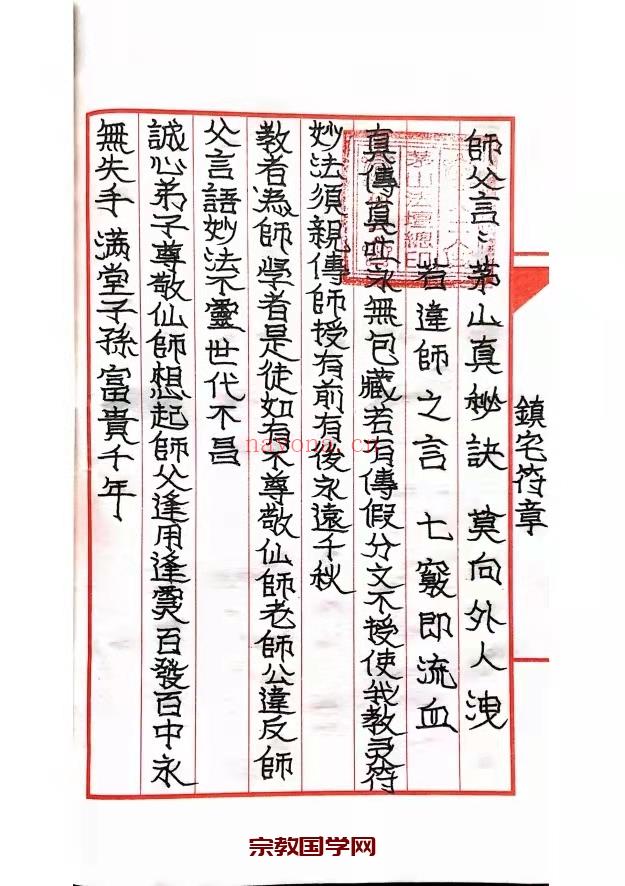 鎮宅符章
師父言:茅山真秘訣 莫向外人洩
若違師之言 七竅即流血
真傳真吐永無包藏若有傳假分文不授使我教灵符
妙法須親傳師授有前有後永遠千秋
教者為師學者是徒如有不尊敬仙師老師公違反師
父言語妙法不靈世代不昌
誠心弟子尊敬仙師想起師父逢用逢靈百發百中永
無失手滿堂子孫富貴千年
茅山法壇總印
nayona.cn
宗教国学网